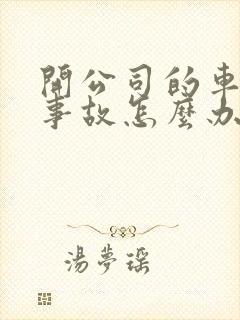 開公司的車
事故怎麼办
湯夢瑶